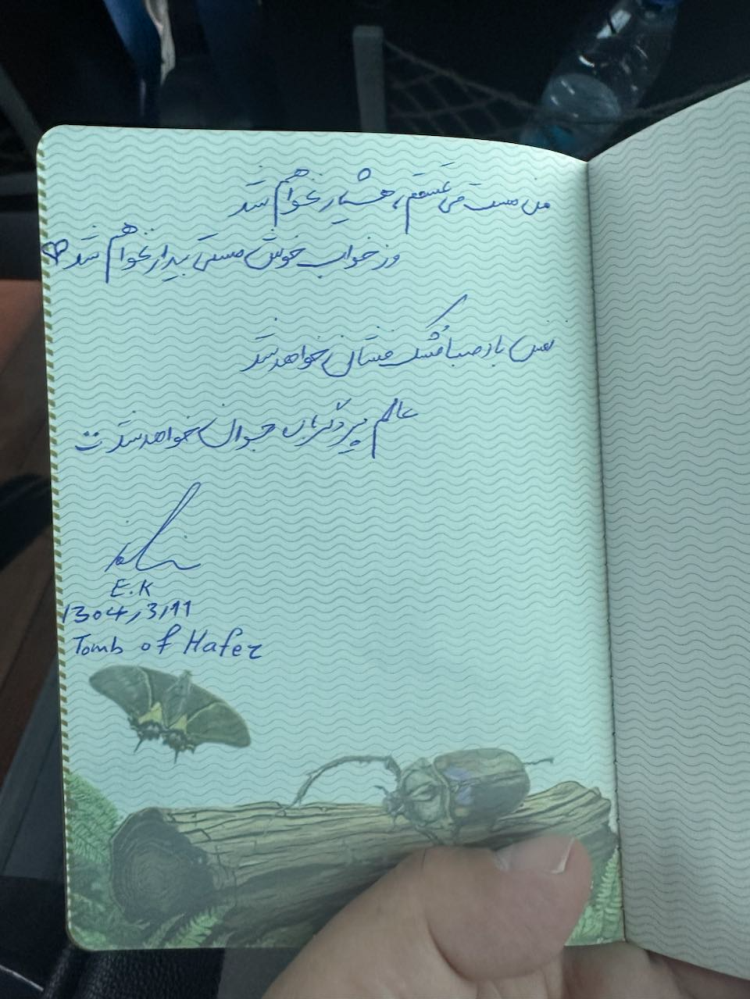 من مست می عشقم، هشیار نخواهم شد
وز خواب خوش مستی بیدار نخواهم شد ♡
نفس باد صبا مُشک فشان خواهد شد
عالم پیر دگر باره جوان خواهد شد
E.K
1304/3/11
Tomb of Hafez